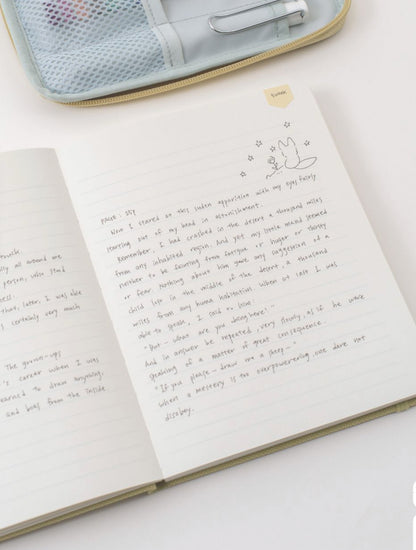 really all around me
person, who stood
that, later, I was able
certainly very much
The grown-ups
's career when I was
learned to draw anything,
and boas from the inside
PAGE : 357
Now I stared at this suden apparition with my eyes fairly
starting out of my head in astonishment.
Remember, I had crashed in the desert a thousand miles
from any inhabited region. And yet my little maind seemed
neither to be fainting from fatigue or hunger or thirsy
or fear. Nothing about him gave any suggestion of a
child lost in the middle of the desert, a thousand
miles from any human habitation. When at last I was
able to speak, I said to him:
"But — what are you doing here?"
And in answer he repeated, very slowly, as if he were
speaking of a matter of great consequence:
"If you please — draw me a sheep—"
When a mystery is too overpowering, one dare not
disobey.